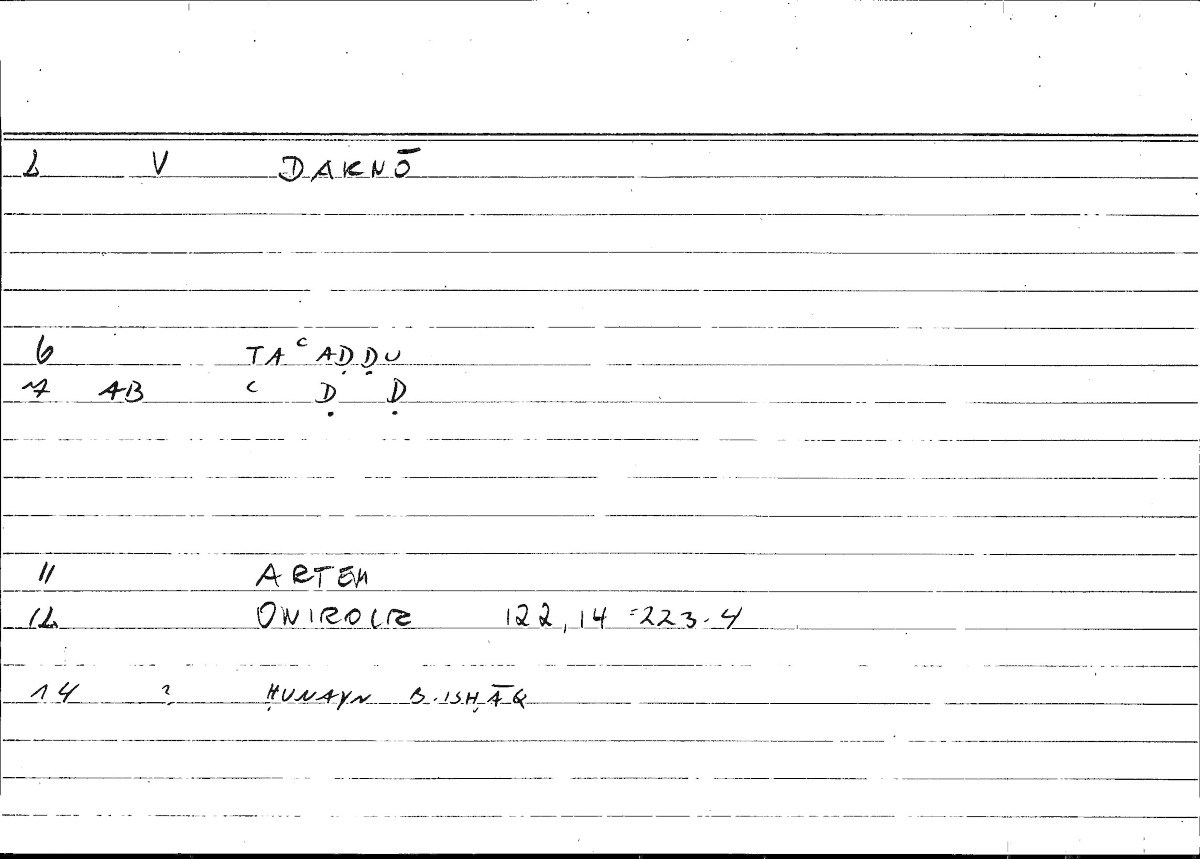 2 V DAKNŌ
6 TAᶜAḌḌU
7 AB ᶜ Ḍ Ḍ
11 ARTEM
12 ONIROCR 122,14 = 223.4
14 ? ḤUNAYN B. ISḤĀQ